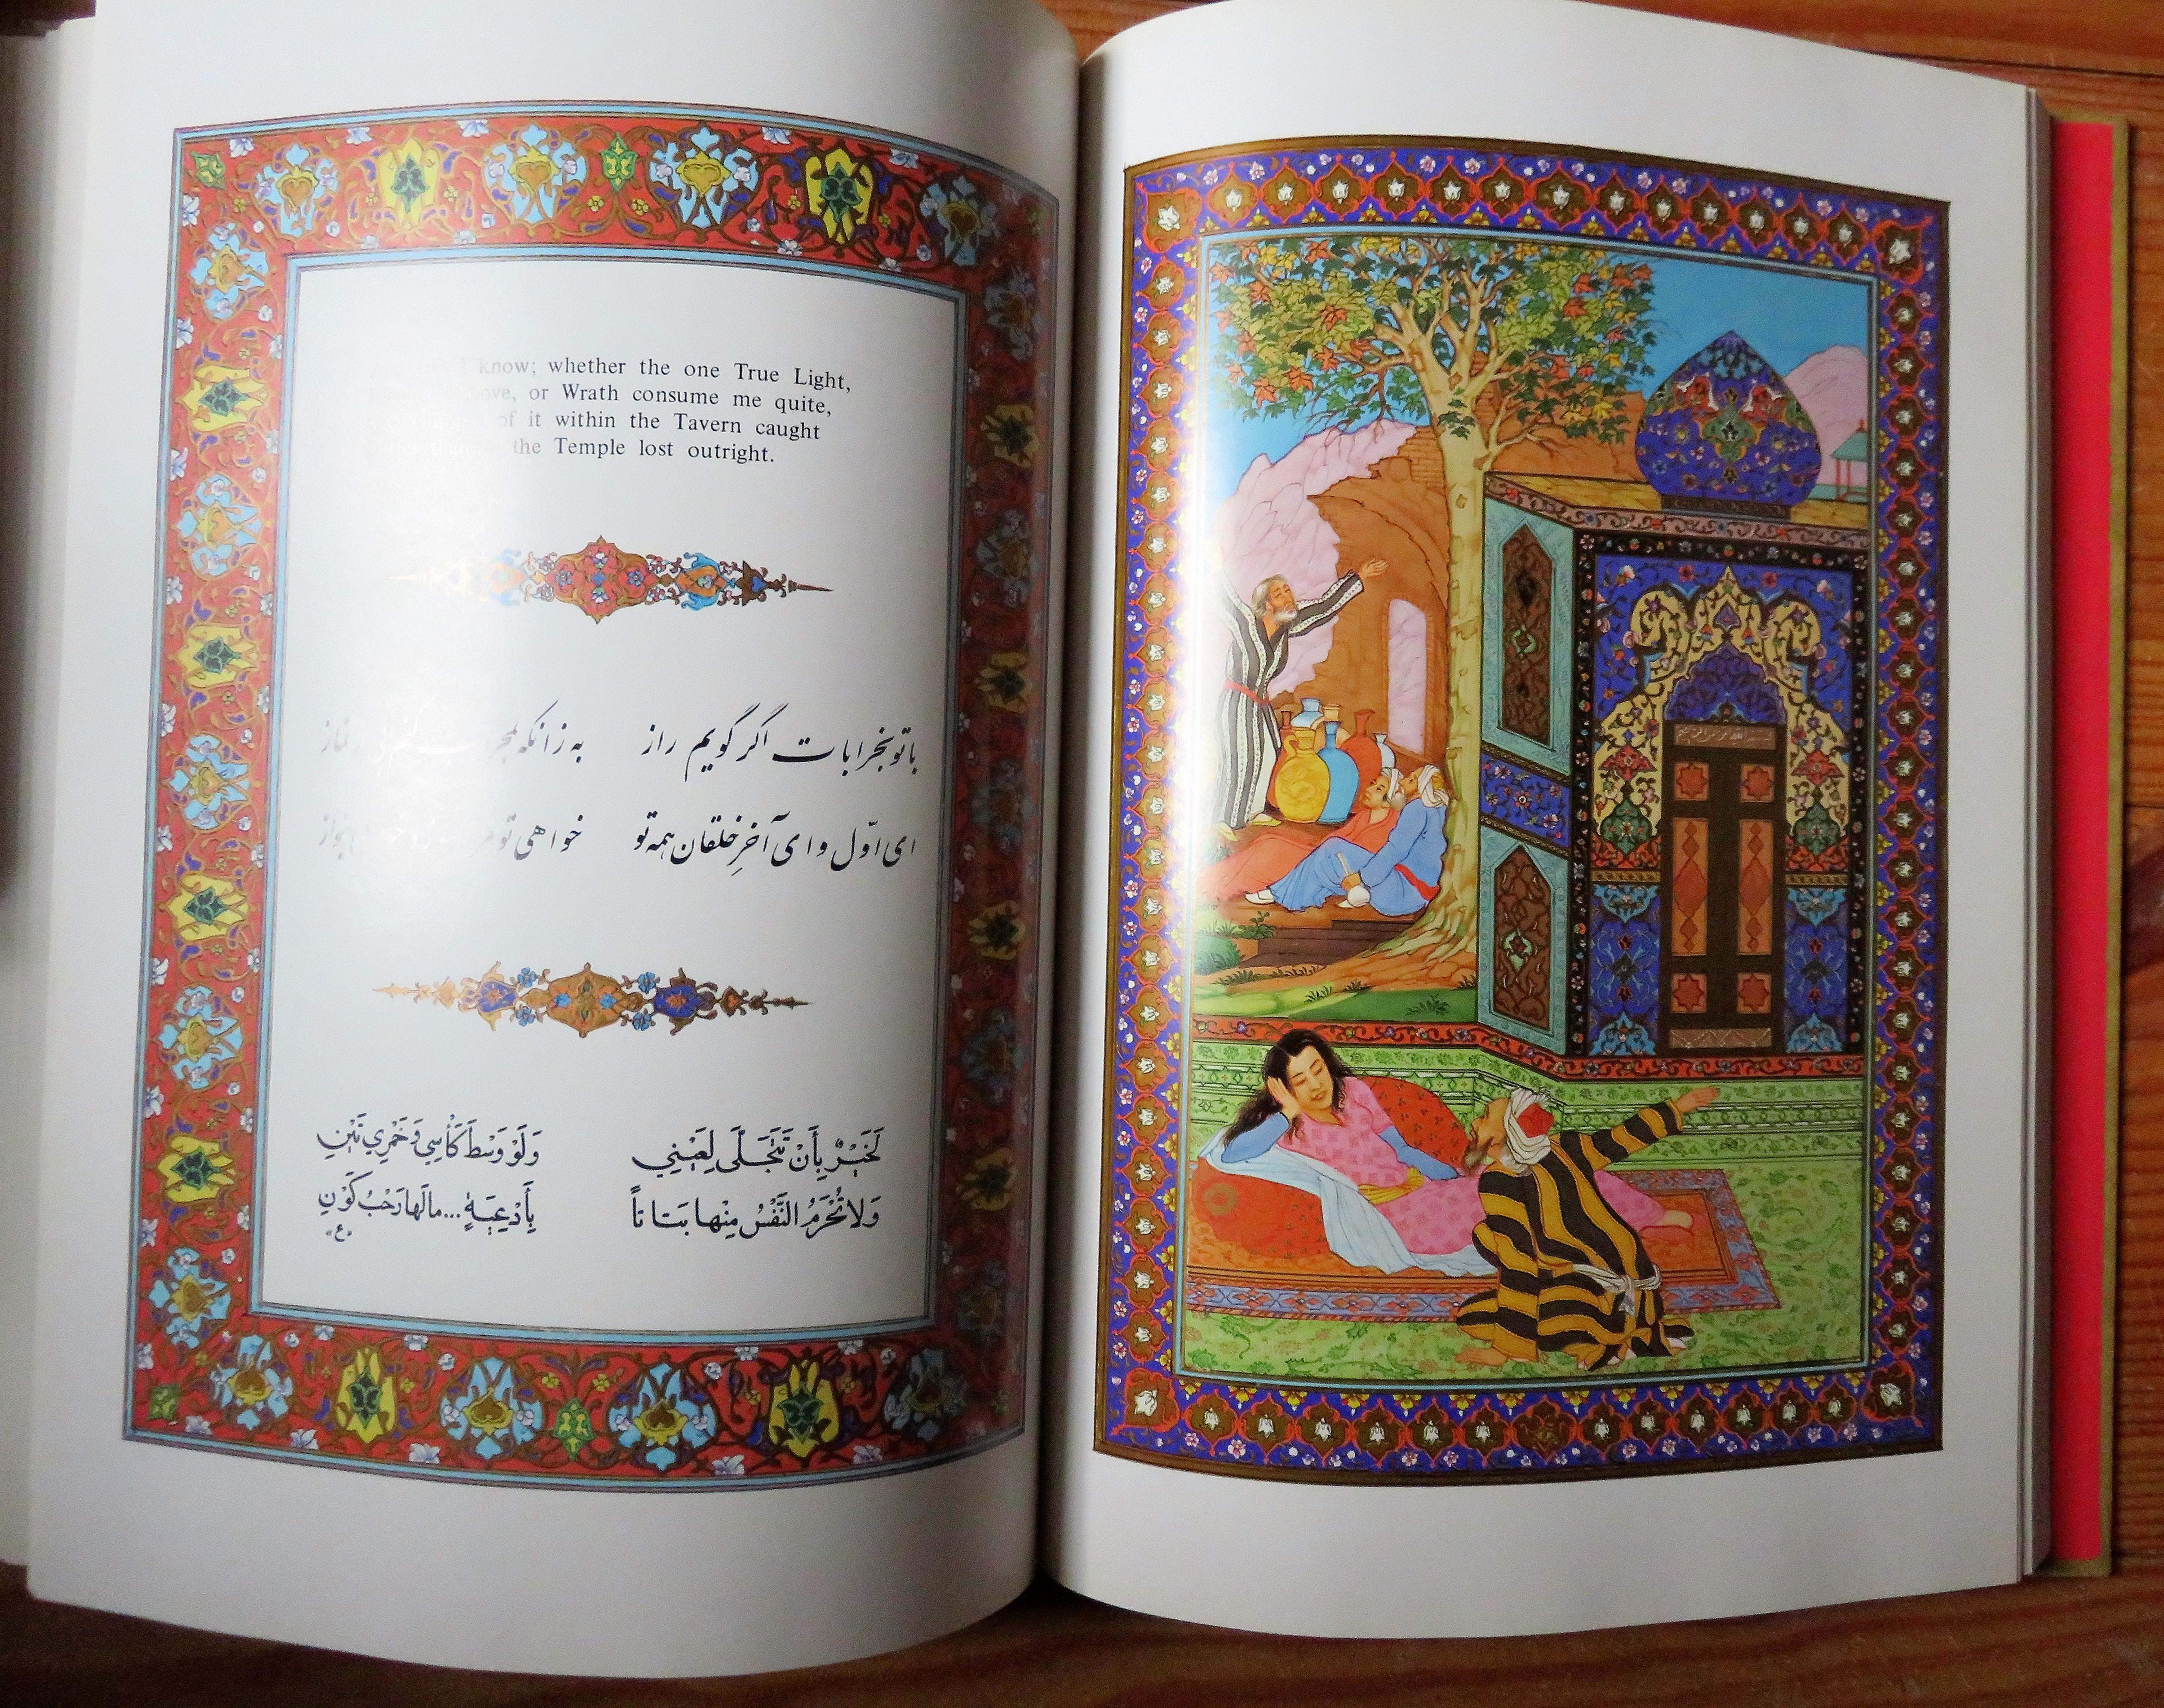 know; whether the one True Light,
ove, or Wrath consume me quite,
of it within the Tavern caught
the Temple lost outright.
با تو بخرابات اگر گویم راز به زانکه نماز
ای اوّل و ای آخرِ خلقان همه تو خواهی تو
لَخَيْرٌ بِأَنْ تَتَجَلَّى لِعَيْنِي وَلَوْ وَسْطَ كَأْسِي وَخَمْرِي
وَلا تُحْرَمُ النَّفْسُ مِنْها بَتاتاً بِأَدْعِيَةٍ... مالَها رَحْبُ كَوْنِ
«ع»